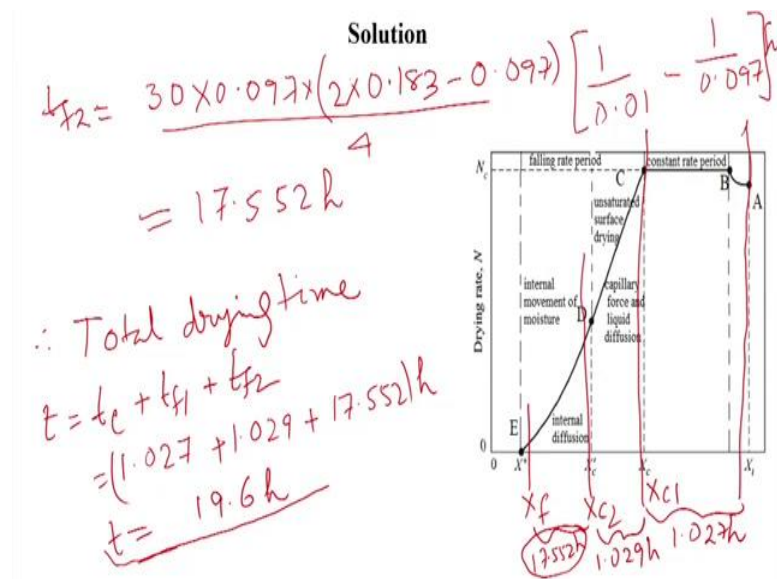 Solution
tf2 = 30×0.097×(2×0.183-0.097)/4 [1/0.01 - 1/0.097] h
= 17.552h
∴ Total drying time
t = tc + tf1 + tf2
= (1.027 + 1.029 + 17.552)h
t = 19.6h
Drying rate, N
Nc
0
falling rate period
constant rate period
C
B
A
unsaturated
surface
drying
internal
movement of
moisture
D
capillary
force and
liquid
diffusion
E
internal
diffusion
0 X* X'c Xc Xi
Xf Xc2 Xc1
17.552h 1.029h 1.027h